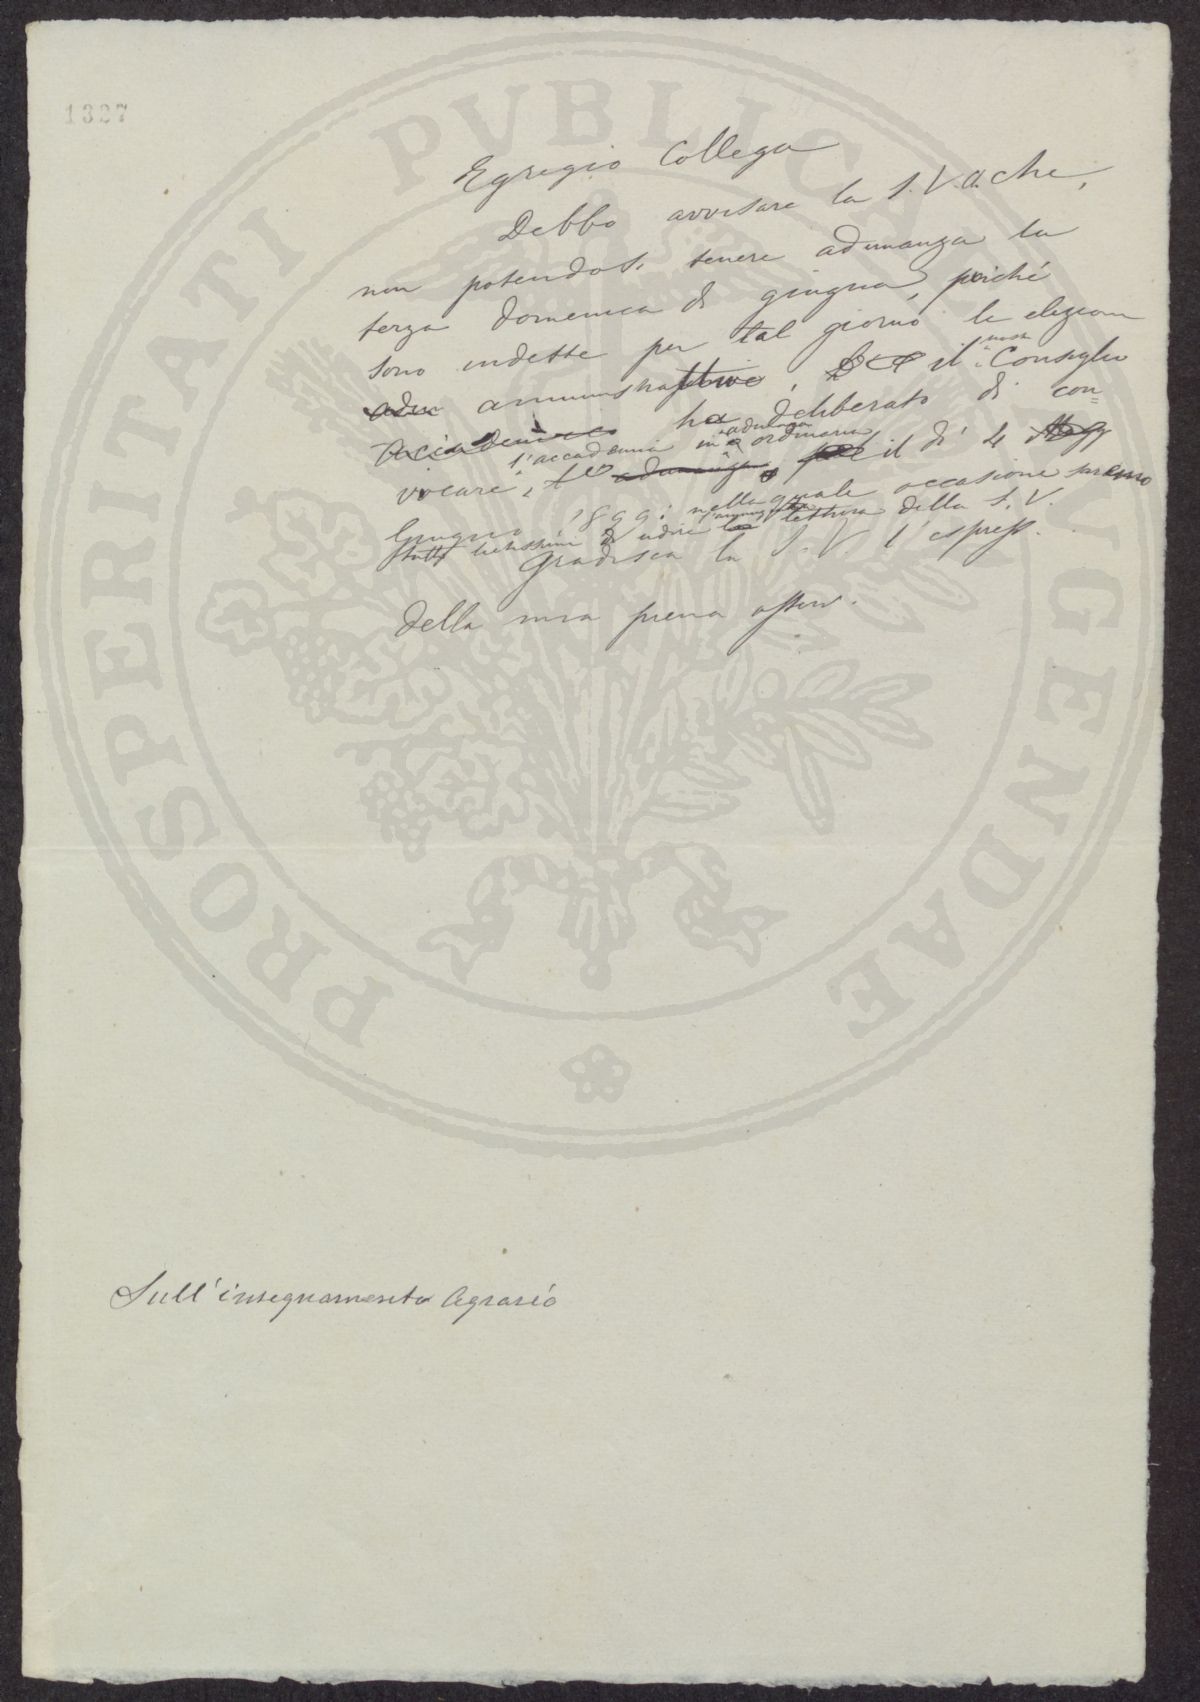 1327
PROSPERITATI PVBLICAE AVGENDAE
Egregio Collega
Debbo avvisare la S. V. che,
non potendosi tenere adunanza la
terza domenica di giugno, poiché
sono indette per tal giorno le elezioni
adm amministrative, il nostro Consiglio
Accademico ha deliberato di con=
vocare l'accademia in adunanza ordinaria adunanza il dì 4 Magg
Giugno 1899: nella quale occasione saremo
tutti lietissimi di udire la lettura della S. V.
Gradisca la S. V. l'espress.
della mia piena osserv.
Sull'insegnamento Agrario